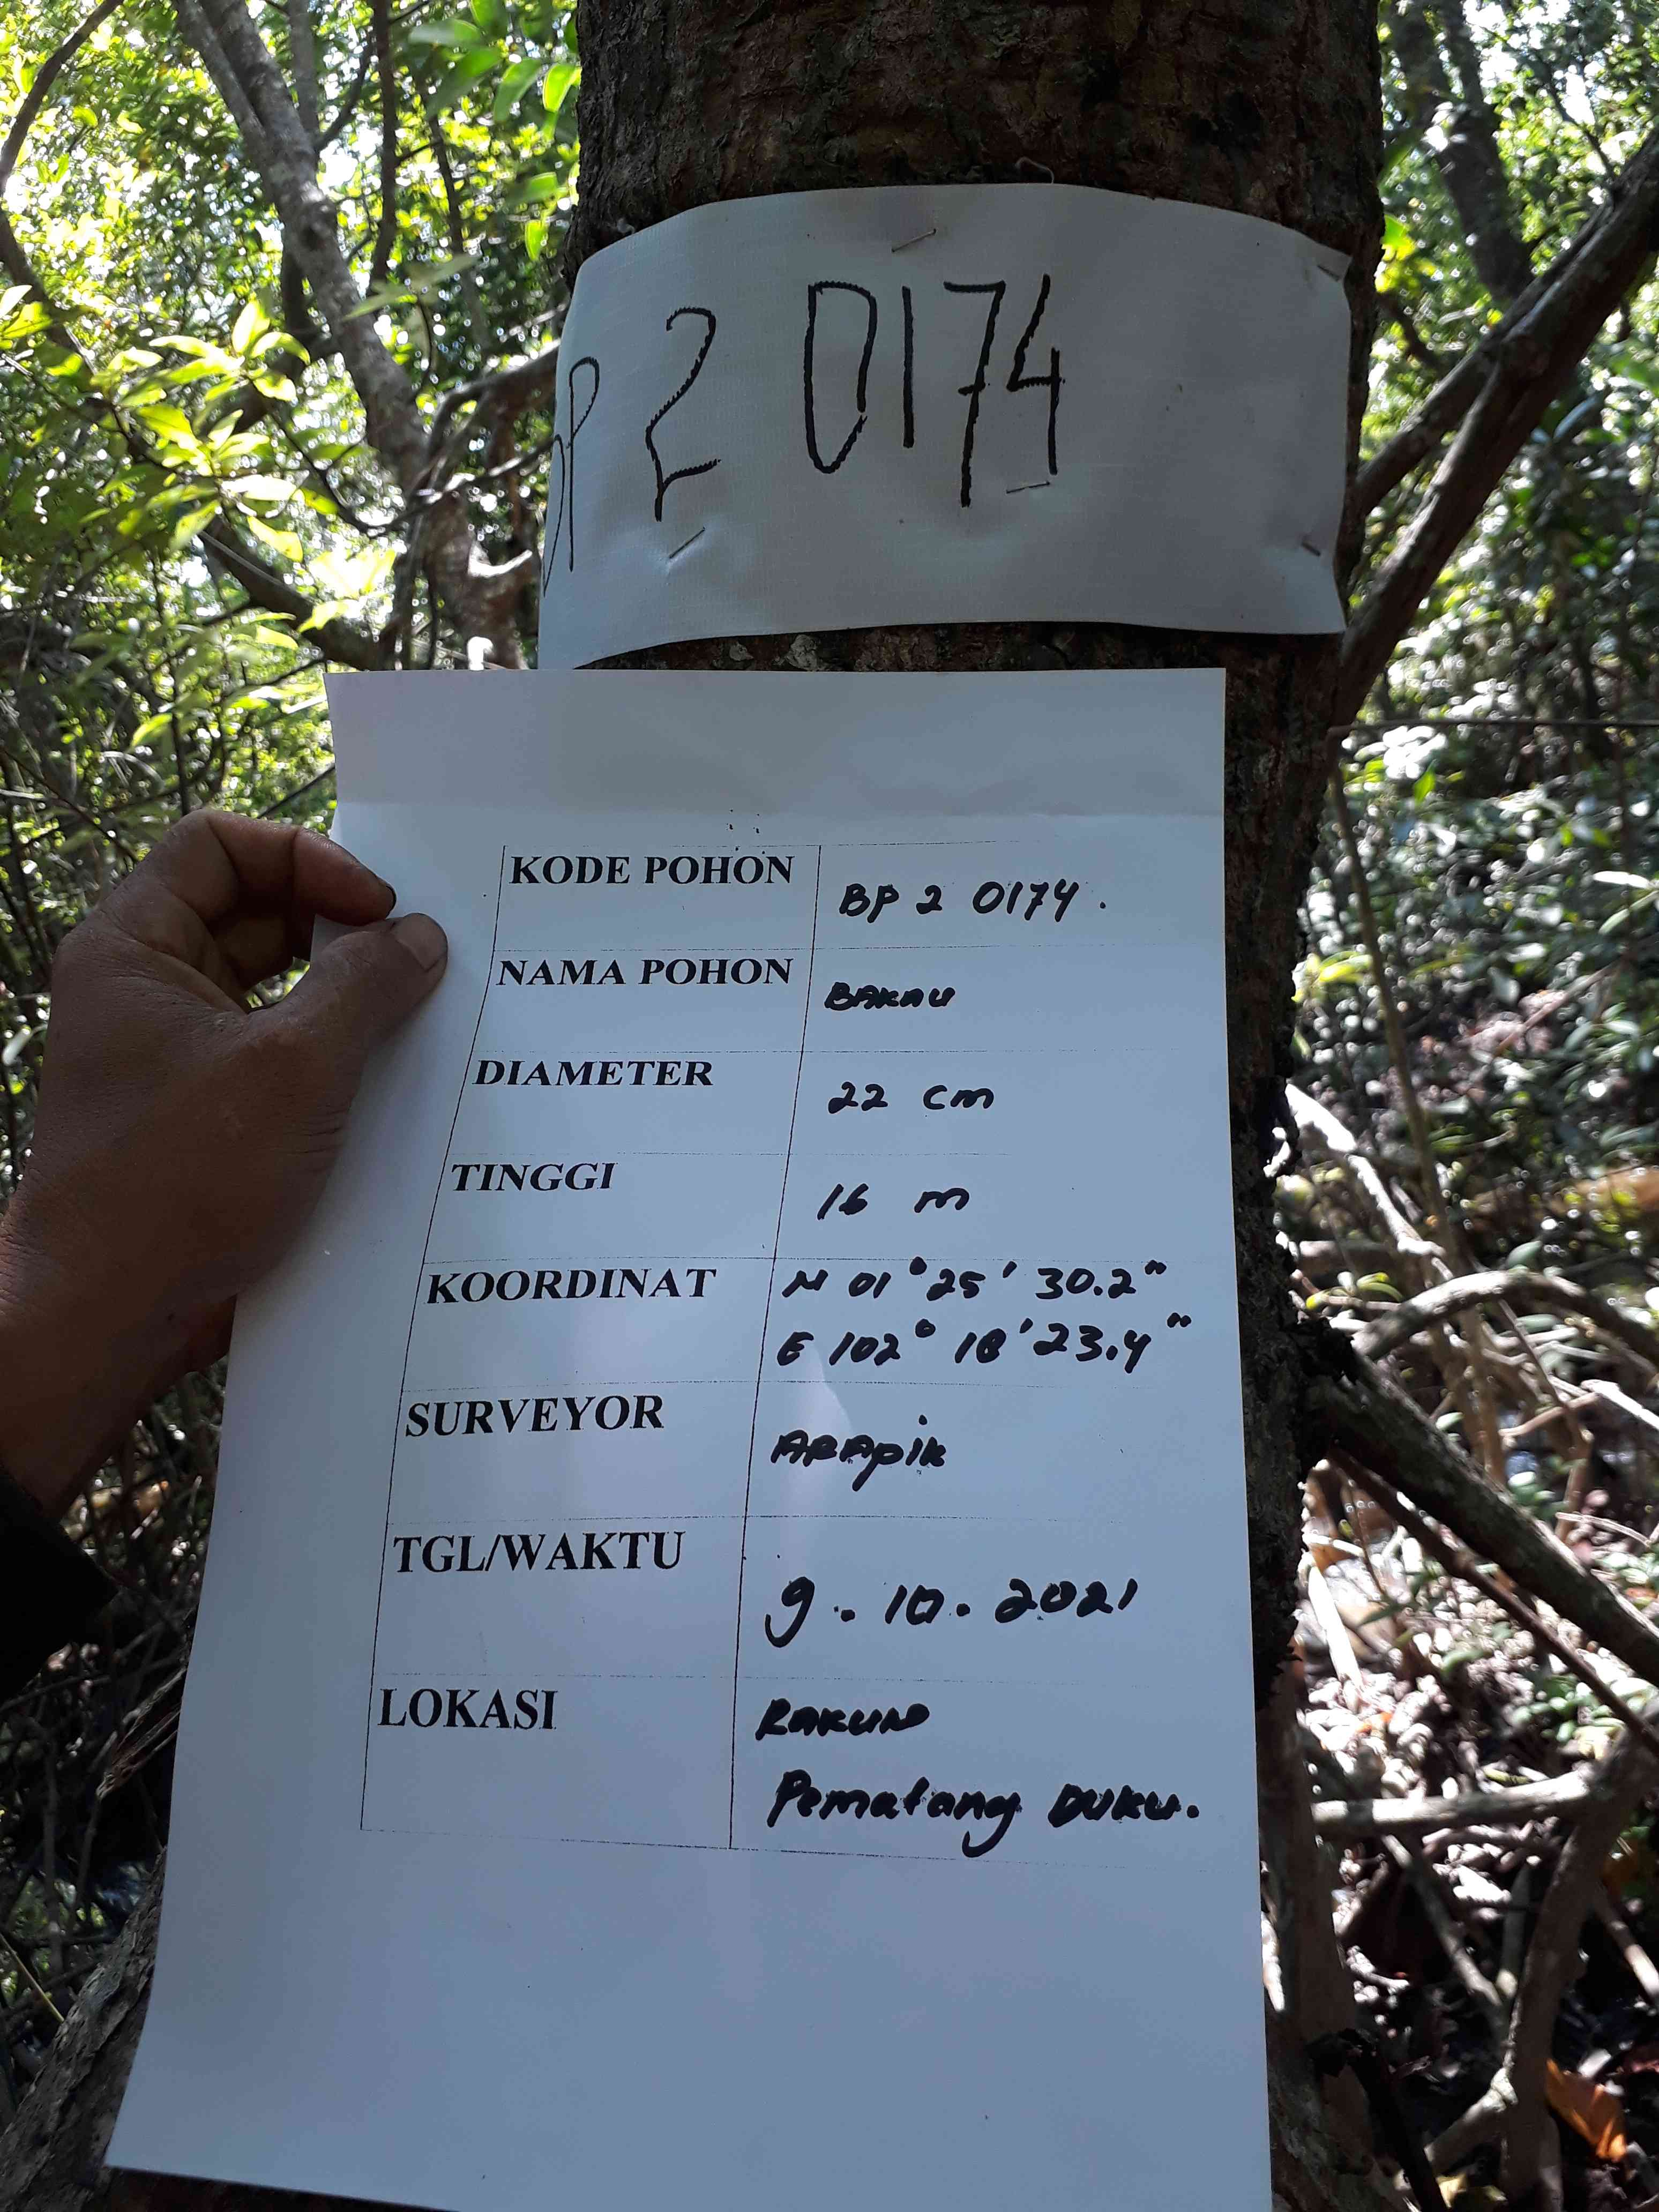 BP 2 0174
KODE POHON BP 2 0174.
NAMA POHON BAKAU
DIAMETER 22 cm
TINGGI 16 m
KOORDINAT N 01° 25' 30.2"
E 102° 18' 23.4"
SURVEYOR ARApik
TGL/WAKTU 9.10.2021
LOKASI RAKUN
Pematang DUKU.